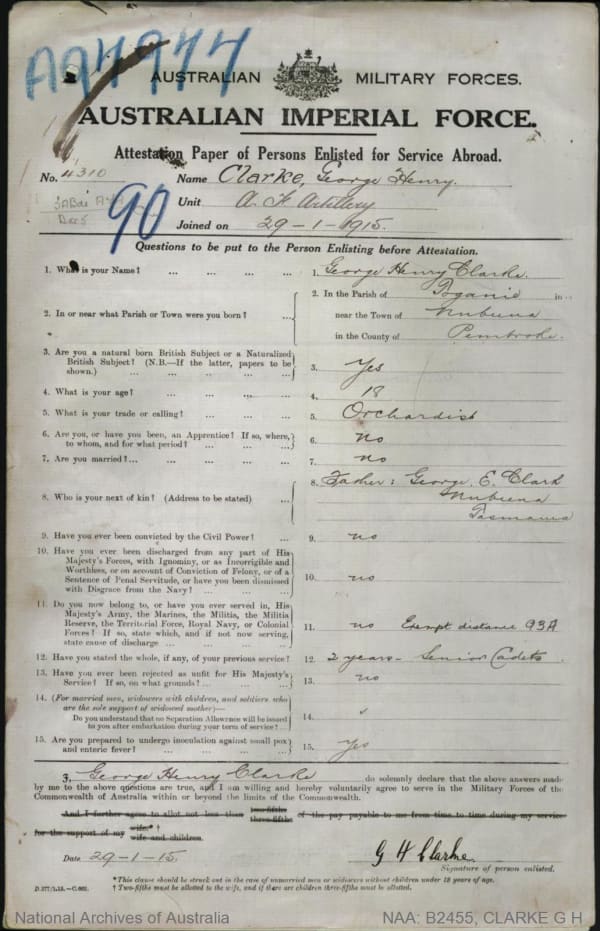 A94977
AUSTRALIAN MILITARY FORCES.
AUSTRALIAN IMPERIAL FORCE.
Attestation Paper of Persons Enlisted for Service Abroad.
No. 4310 Name Clarke, George Henry.
Unit A. F. Artillery
90
Joined on 29-1-1915.
Questions to be put to the Person Enlisting before Attestation.
1. What is your Name? ... ... ... ... 1. George Henry Clarke.
2. In or near what Parish or Town were you born? ... 2. In the Parish of in
near the Town of Nubeena
in the County of Pembroke.
3. Are you a natural born British Subject or a Naturalized
British Subject? (N.B.—If the latter, papers to be
shown.) ... ... ... ... 3. Yes
4. What is your age? ... ... ... ... 4. 18
5. What is your trade or calling? ... ... ... 5. Orchardist
6. Are you, or have you been, an Apprentice? If so, where,
to whom, and for what period? ... ... ... 6. no
7. Are you married?... ... ... ... ... 7. no
8. Who is your next of kin? (Address to be stated) ... 8. Father: George. E. Clark
Nubeena
Tasmania
9. Have you ever been convicted by the Civil Power? ... 9. no
10. Have you ever been discharged from any part of His
Majesty's Forces, with Ignominy, or as Incorrigible and
Worthless, or on account of Conviction of Felony, or of a
Sentence of Penal Servitude, or have you been dismissed
with Disgrace from the Navy? ... ... ... 10. no
11. Do you now belong to, or have you ever served in, His
Majesty's Army, the Marines, the Militia, the Militia
Reserve, the Territorial Force, Royal Navy, or Colonial
Forces? If so, state which, and if not now serving,
state cause of discharge ... ... ... 11. no Exempt distance 93A
12. Have you stated the whole, if any, of your previous service? 12. 2 years - Senior Cadets
13. Have you ever been rejected as unfit for His Majesty's
Service? If so, on what grounds? ... ... ... 13. no
14. (For married men, widowers with children, and soldiers who
are the sole support of widowed mother)—
Do you understand that no Separation Allowance will be issued
to you after embarkation during your term of service? ... 14.
15. Are you prepared to undergo inoculation against small pox
and enteric fever? ... ... ... ... 15. Yes
I, George Henry Clarke do solemnly declare that the above answers made
by me to the above questions are true, and I am willing and hereby voluntarily agree to serve in the Military Forces of the
Commonwealth of Australia within or beyond the limits of the Commonwealth.
And I further agree to allot not less than two-fifths three-fifths of the pay payable to me from time to time during my service
for the support of my wife.*† wife and children.
Date 29-1-15. G H Clarke
Signature of person enlisted.
*This clause should be struck out in the case of unmarried men or widowers without children under 18 years of age.
† Two-fifths must be allotted to the wife, and if there are children three-fifths must be allotted.
National Archives of Australia NAA: B2455, CLARKE G H